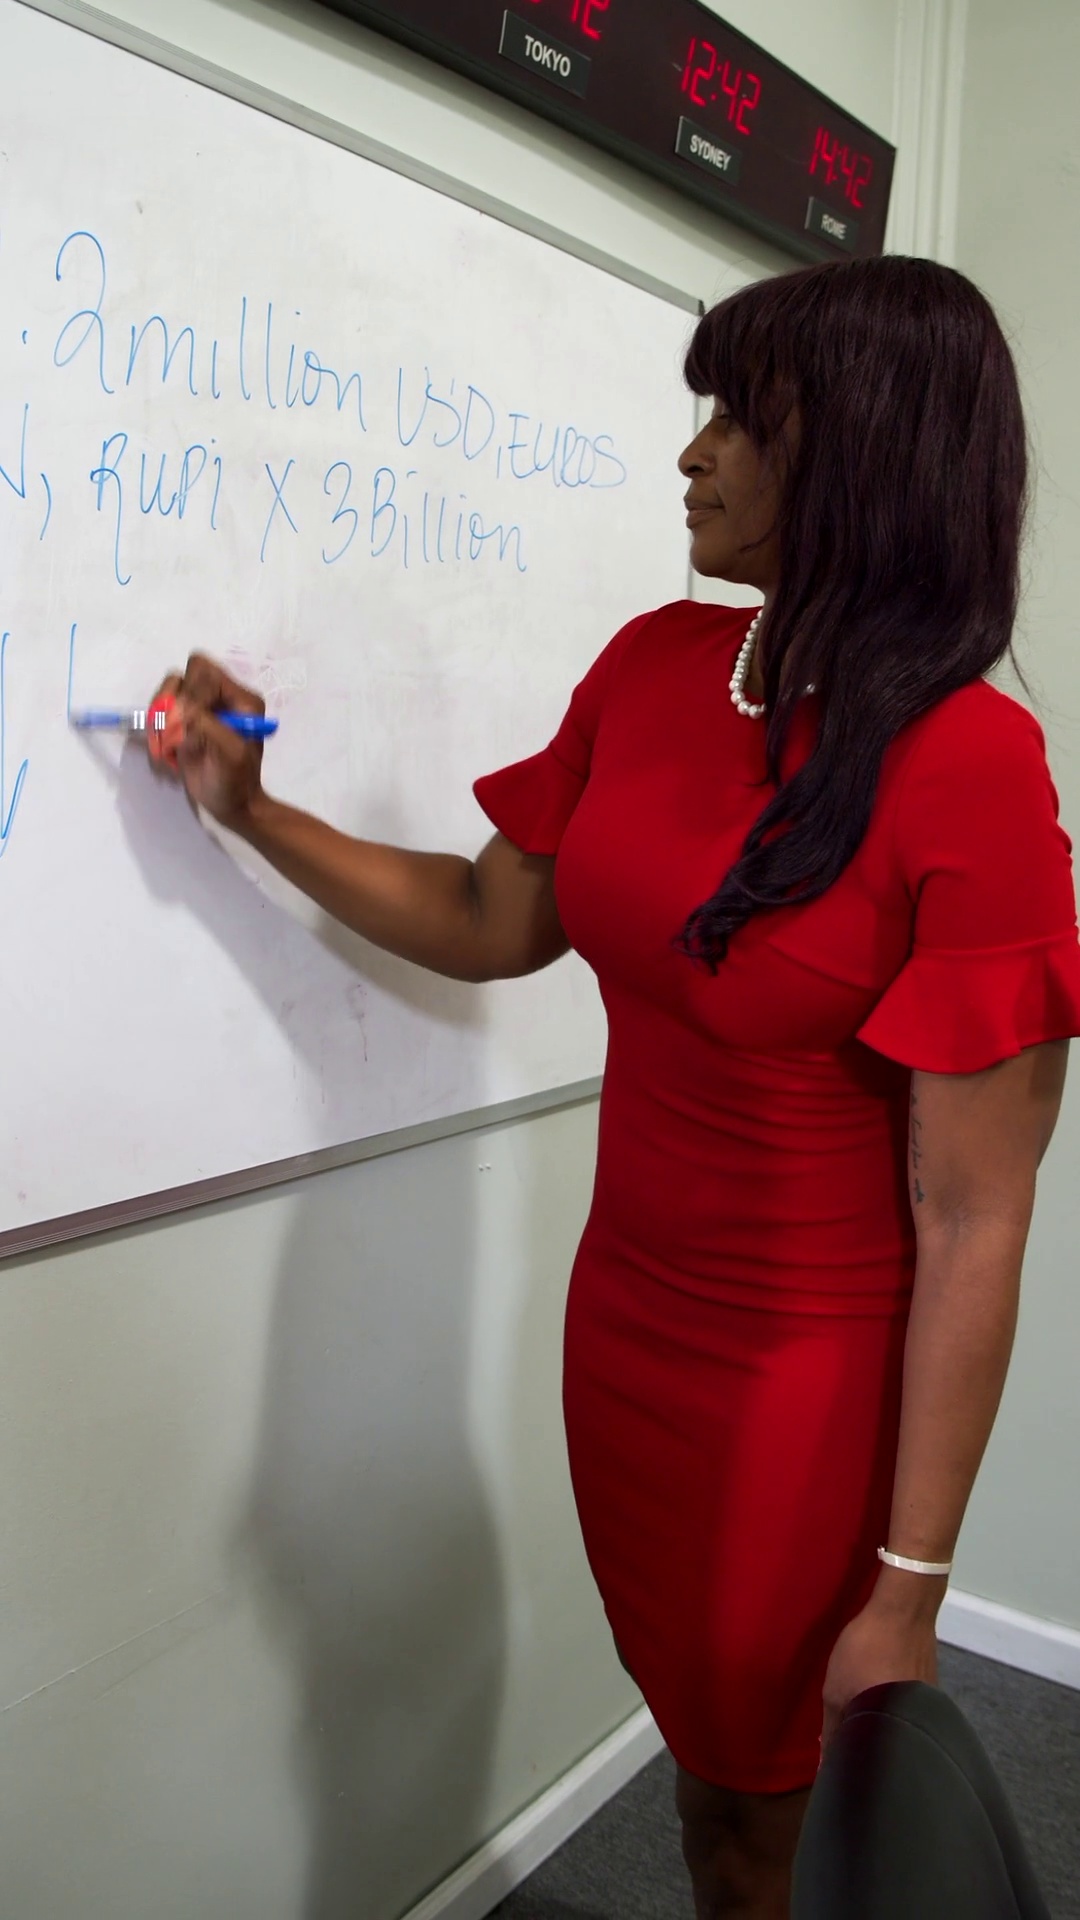 TOKYO
12:42
SYDNEY
14:42
ROME
. 2million USD, EUROS
, RUPi X 3Billion